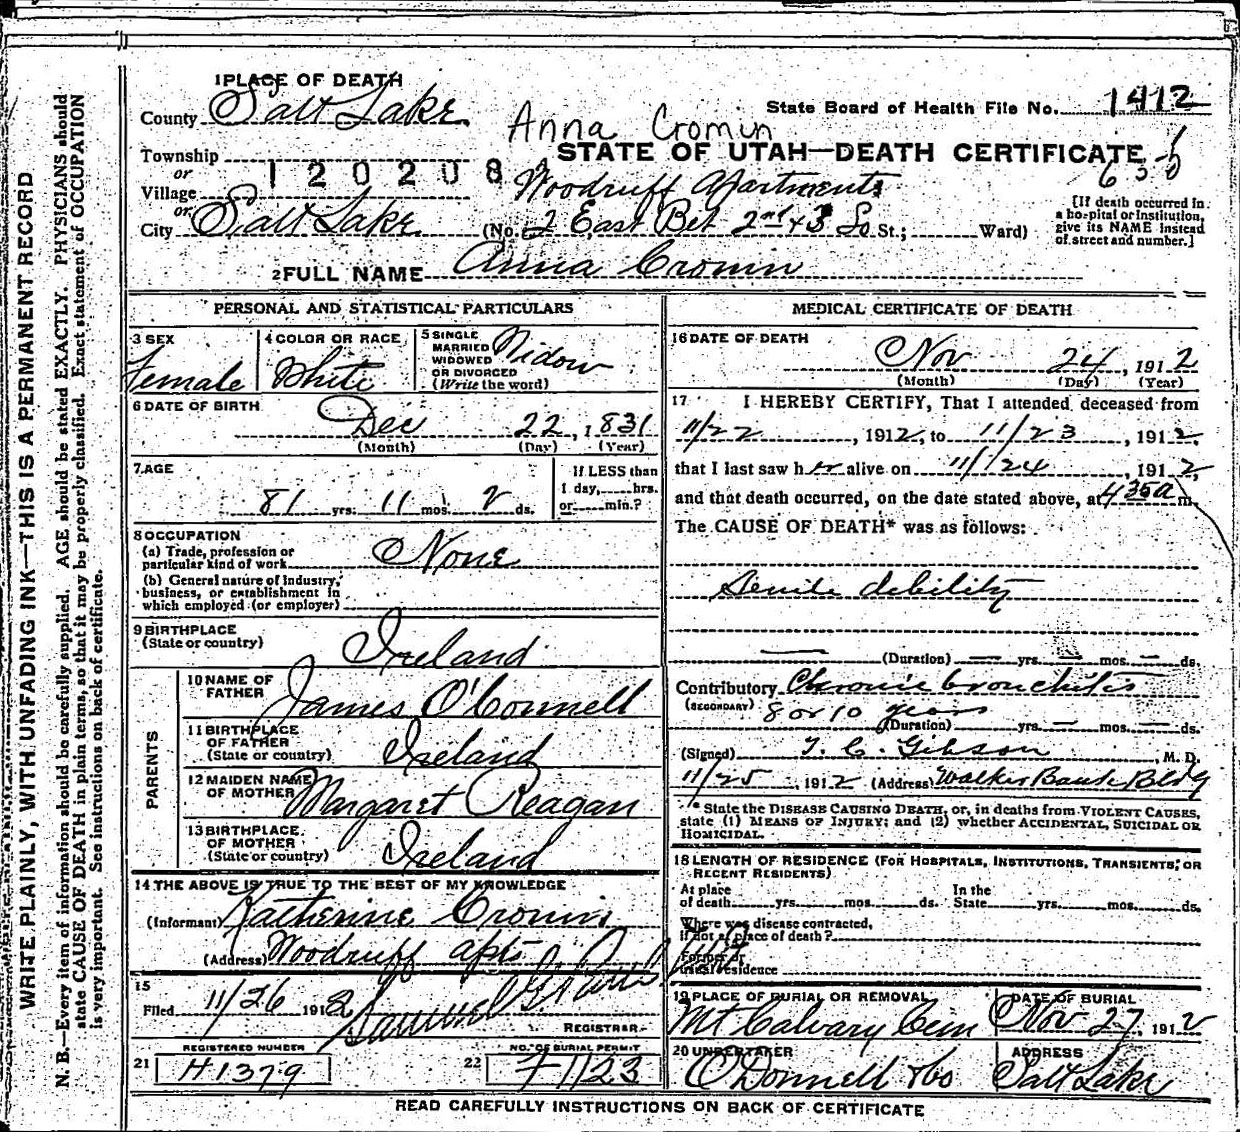 1 PLACE OF DEATH
County Salt Lake
State Board of Health File No. 1412
Anna Cromin
Township
or
120208
STATE OF UTAH—DEATH CERTIFICATE
Village
or
Woodruff Apartments
City Salt Lake (No. 2 East Bet 2nd + 3 So St.; Ward)
[If death occurred in a hospital or institution, give its NAME instead of street and number.]
2 FULL NAME Anna Cronin
PERSONAL AND STATISTICAL PARTICULARS
3 SEX
Female
4 COLOR OR RACE
White
5 SINGLE
MARRIED
WIDOWED
OR DIVORCED
(Write the word)
Widow
6 DATE OF BIRTH
Dec 22, 1831
(Month) (Day) (Year)
7 AGE
81 yrs. 11 mos. 2 ds.
If LESS than
1 day, hrs.
or min.?
8 OCCUPATION
(a) Trade, profession or
particular kind of work None
(b) General nature of industry,
business, or establishment in
which employed (or employer)
9 BIRTHPLACE
(State or country)
Ireland
PARENTS
10 NAME OF
FATHER
James O'Connell
11 BIRTHPLACE
OF FATHER
(State or country)
Ireland
12 MAIDEN NAME
OF MOTHER
Margaret Reagan
13 BIRTHPLACE
OF MOTHER
(State or country)
Ireland
14 THE ABOVE IS TRUE TO THE BEST OF MY KNOWLEDGE
(Informant) Katherine Cronin
(Address) Woodruff apts
15
Filed 11/26 1912 Samuel G.
REGISTRAR
REGISTERED NUMBER
21 H1379
NO. OF BURIAL PERMIT
22 F1123
MEDICAL CERTIFICATE OF DEATH
16 DATE OF DEATH
Nov 24, 1912
(Month) (Day) (Year)
17 I HEREBY CERTIFY, That I attended deceased from
11/22, 1912, to 11/23, 1912,
that I last saw her alive on 11/24, 1912,
and that death occurred, on the date stated above, at 4 35a m.
The CAUSE OF DEATH* was as follows:
Senile debility
(Duration) — yrs. — mos. — ds.
Contributory Chronic bronchitis
(SECONDARY) 8 or 10 years
(Duration) yrs. — mos. — ds.
(Signed) T. C. Gibson, M. D.
11/25, 1912 (Address) Walker Bank Bldg
* State the DISEASE CAUSING DEATH, or, in deaths from VIOLENT CAUSES,
state (1) MEANS OF INJURY; and (2) whether ACCIDENTAL, SUICIDAL OR
HOMICIDAL.
18 LENGTH OF RESIDENCE (FOR HOSPITALS, INSTITUTIONS, TRANSIENTS, OR
RECENT RESIDENTS)
At place
of death yrs. mos. ds.
In the
State yrs. mos. ds.
Where was disease contracted,
if not at place of death?
Former or
usual residence
19 PLACE OF BURIAL OR REMOVAL
Mt Calvary Cem
DATE OF BURIAL
Nov 27, 1912
20 UNDERTAKER
O'Donnell & Co
ADDRESS
Salt Lake
READ CAREFULLY INSTRUCTIONS ON BACK OF CERTIFICATE
WRITE PLAINLY, WITH UNFADING INK—THIS IS A PERMANENT RECORD
N. B.—Every item of information should be carefully supplied. AGE should be stated EXACTLY. PHYSICIANS should
state CAUSE OF DEATH in plain terms, so that it may be properly classified. Exact statement of OCCUPATION
is very important. See instructions on back of certificate.